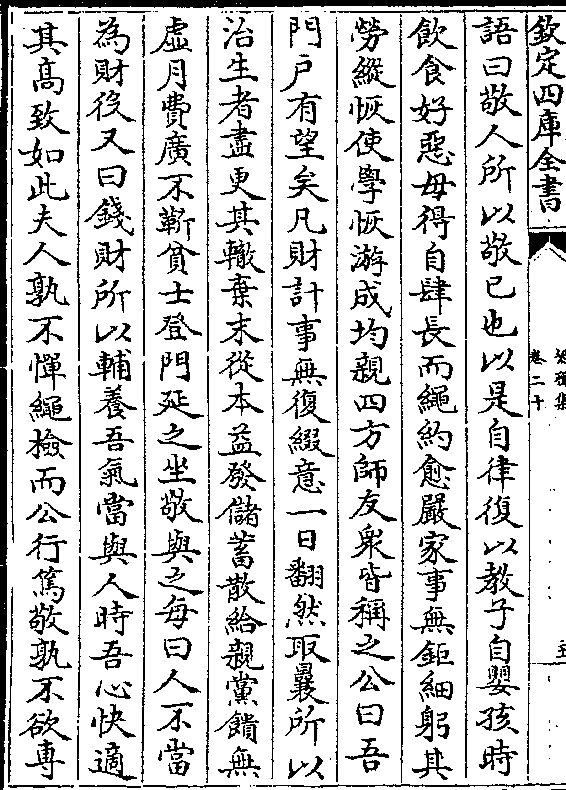 欽定四庫全書
卷二十
語曰敬人所以敬已也以是自律復以教子自嬰孩時
飲食好惡毋得自肆長而繩約愈嚴家事無鉅細躬其
勞縱恢使學恢游成均親四方師友衆皆稱之公曰吾
門戸有望矣凡財計事無復綴意一日翻然取曩所以
治生者盡更其轍棄末從本益發儲蓄散給親黨饋無
虛月費廣不靳貧士登門延之坐敬與之每曰人不當
為財役又曰錢財所以輔養吾氣當與人時吾心快適
其高致如此夫人孰不憚繩檢而公行篤敬孰不欲專